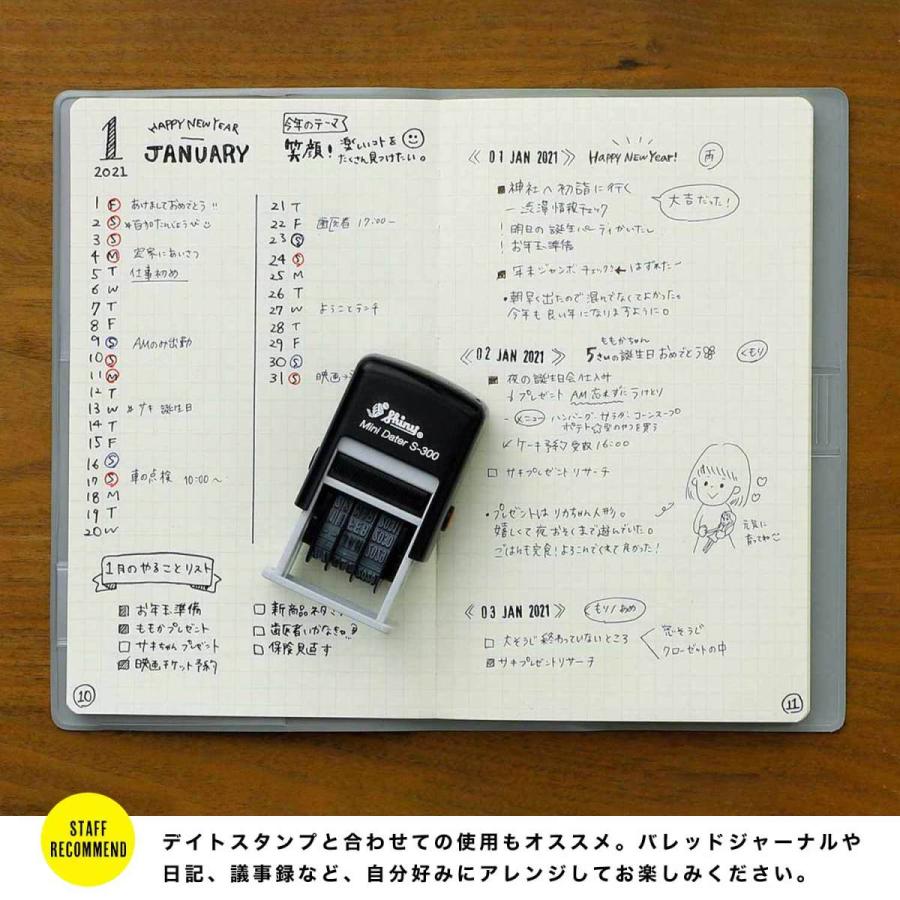 1
2021
HAPPY NEW YEAR
JANUARY
今年のテーマ
笑顔! 楽しいコトを
たくさん見つけたい。
1 F あけましておめでとう!!
2 S
3 S
4 M 定家にあいさつ
5 T 仕事初め
6 W
7 T
8 F
9 S AMのみ出勤
10 S
11 M
12 T
13 W * サキ 誕生日
14 T
15 F
16 S
17 S 車の点検 10:00~
18 M
19 T
20 W
21 T
22 F 歯医者 17:00~
23 S
24 S
25 M
26 T
27 W ようことランチ
28 T
29 F
30 S
31 S 映画
1月のやることリスト
お年玉準備
ももかプレゼント
サキちゃんプレゼント
映画チケット予約
新商品ネタ
歯医者いかなきゃ
保険見直す
10
Shiny®
Mini Dater S-300
《 01 JAN 2021 》 HAPPY NEW YEAR! 雨
神社へ初詣に行く
ー渋滞情報チェック
大吉だった!
! 明日の誕生パーティかいだし
! お年玉準備
年末ジャンボチェック! ← はずれたー
・朝早く出たので混んでなくてよかった。
今年も良い年になりますように。
《 02 JAN 2021 》 ももかちゃん
5さいの誕生日おめでとう くもり
夜の誕生日会仕込み
プレゼント AM忘れずにうけとり
メニュー ハンバーグ・サラダ・コーンスープ
ポテト☆型のやつを買う
ケーキ予約 受取 16:00
サキプレゼントリサーチ
・プレゼントはリカちゃん人形。
嬉しくて夜おそくまで遊んでいた。
ごはんも完食!よろこんでくれて良かった!
元気に
育ってね
《 03 JAN 2021 》 くもり/あめ
大そうじ終わっていないところ
窓そうじ
クローゼットの中
サキプレゼントリサーチ
11
STAFF
RECOMMEND
デイトスタンプと合わせての使用もオススメ。バレッドジャーナルや
日記、議事録など、自分好みにアレンジしてお楽しみください。